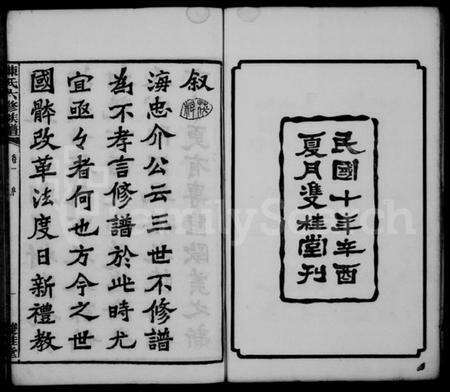 民國十年辛酉
夏月雙桂堂刊
叙
海忠介公云三世不修譜
為不孝言修譜於此時尤
宜亟々者何也方今之世
國體改革法度日新禮教
氏六修族譜
卷一
FamilySearch